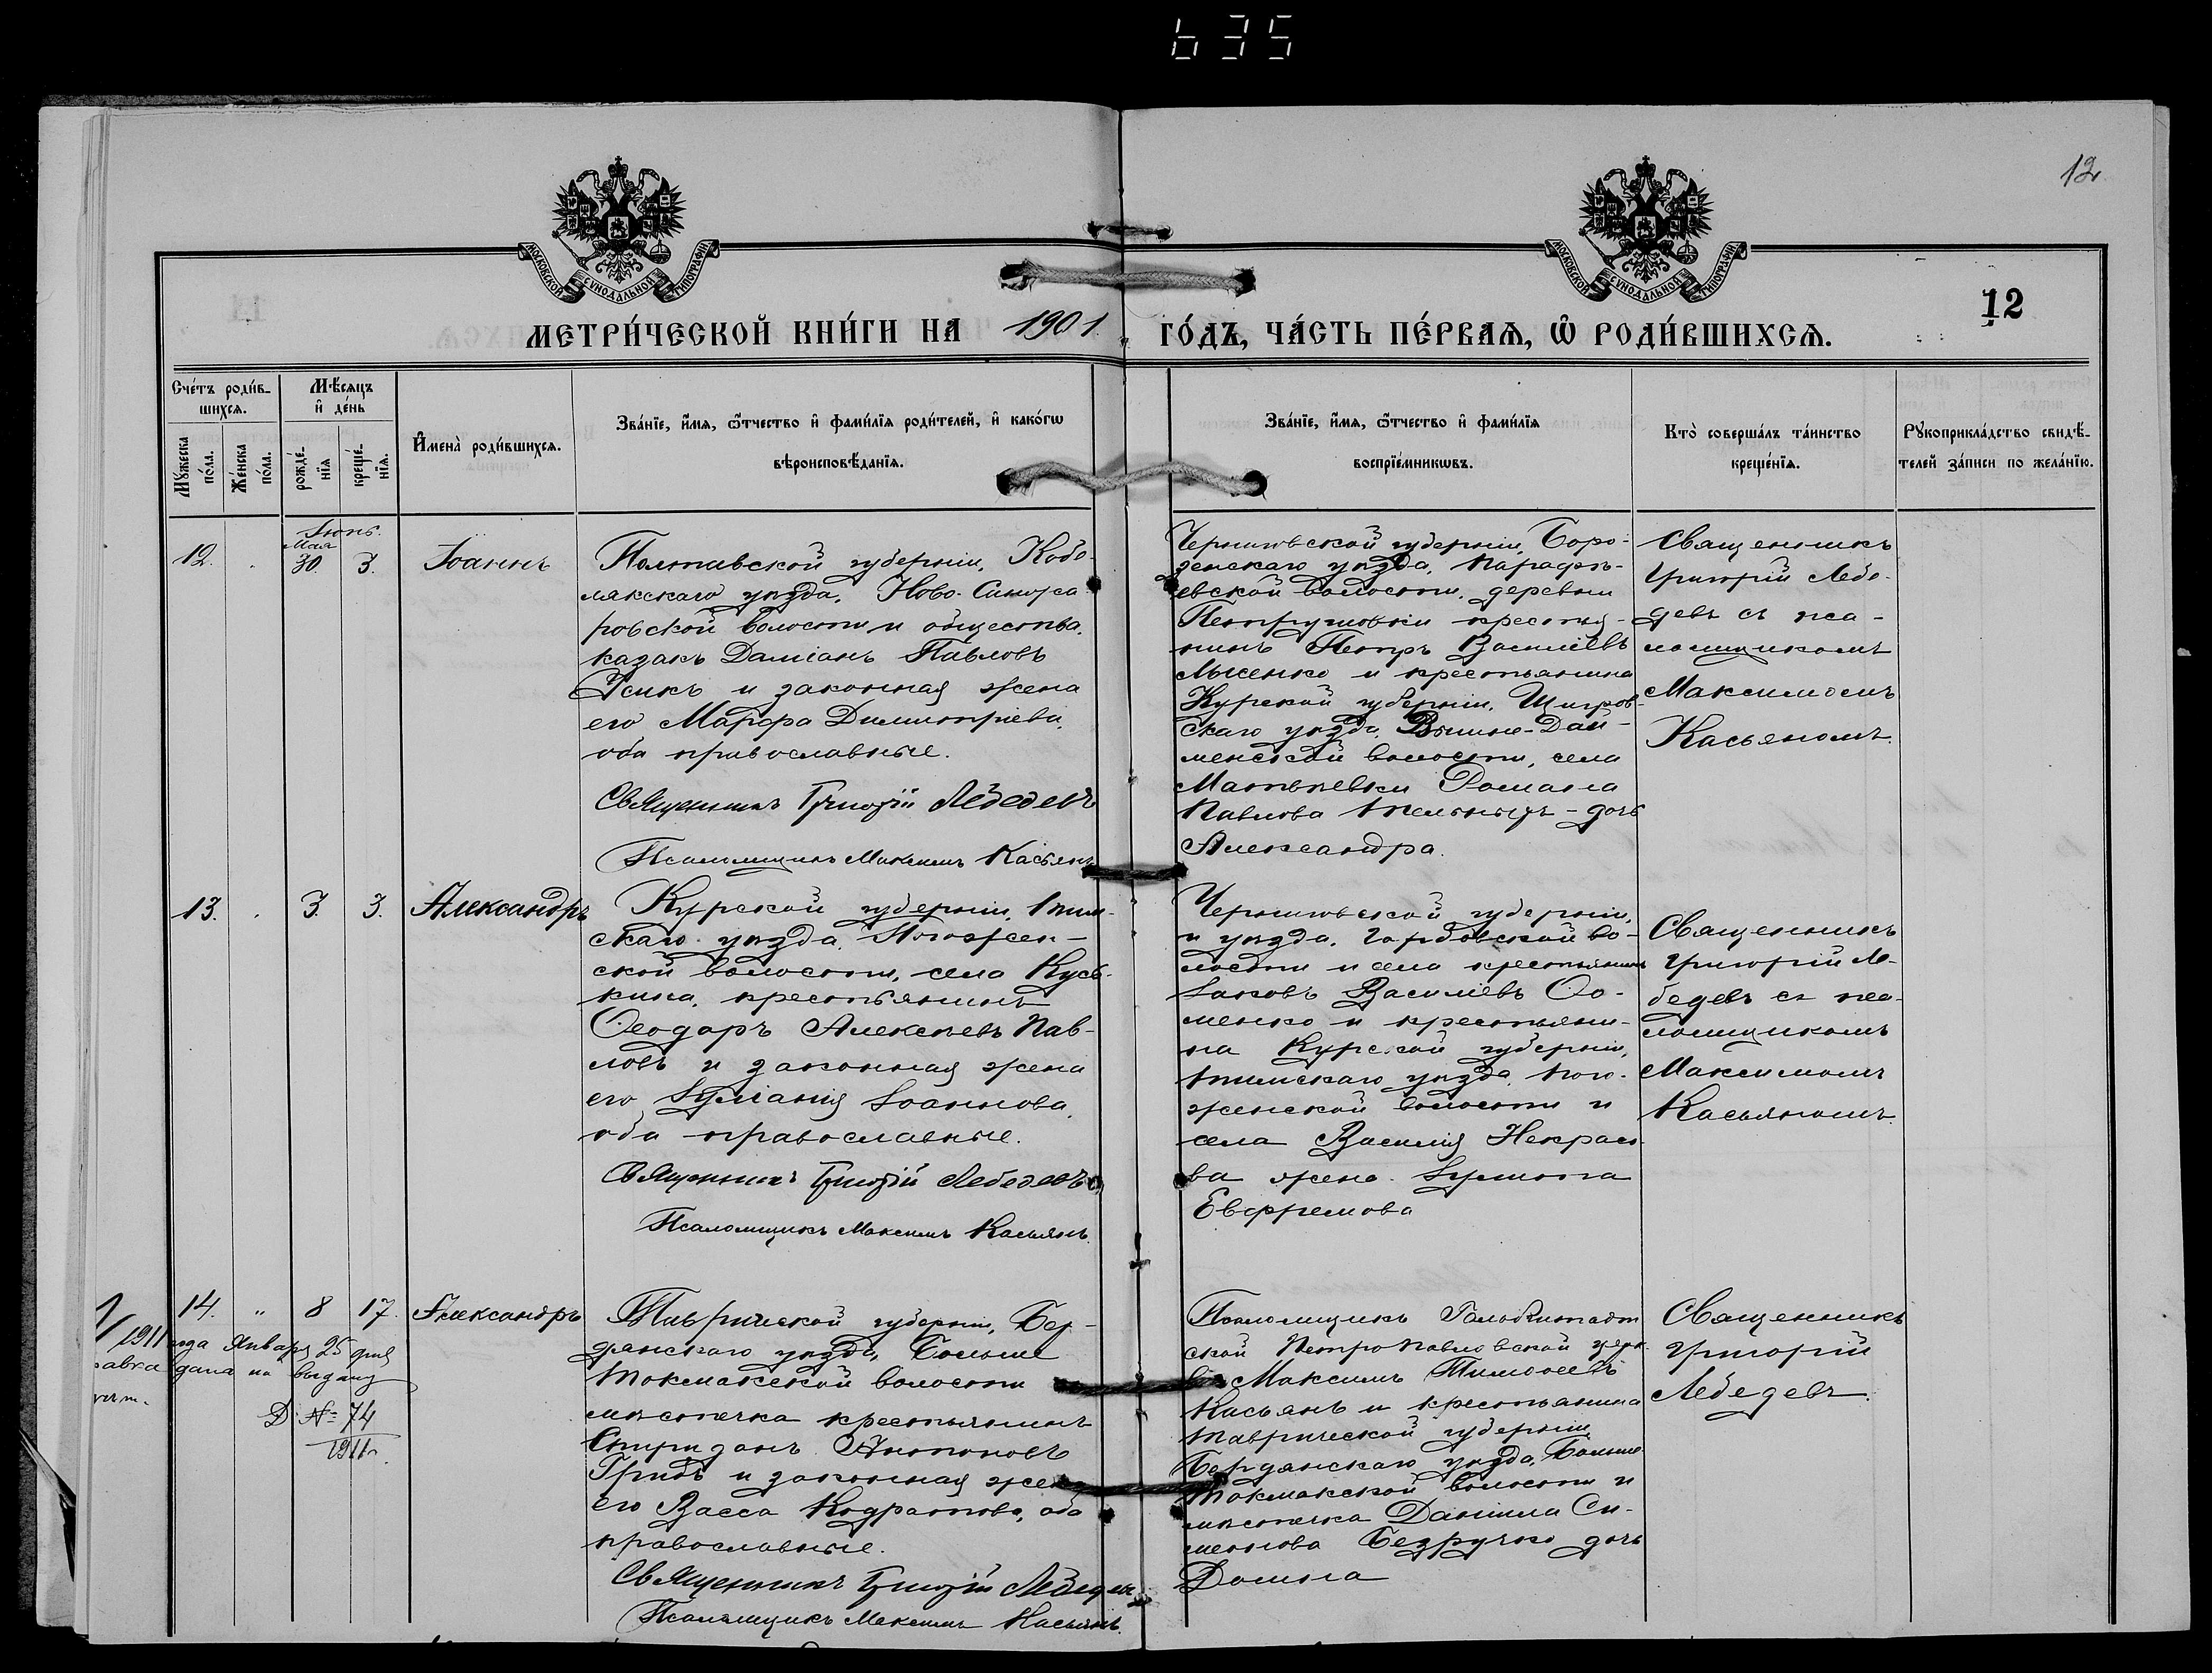 635
12
12
МОСКОВСКОЙ СѴНОДАЛЬНОЙ ТИПОГРАФІИ
МОСКОВСКОЙ СѴНОДАЛЬНОЙ ТИПОГРАФІИ
МЕТРИ́ЧЕСКОЙ КНИ́ГИ НА 1901 ГО́ДЪ, ЧА́СТЬ ПЕ́РВАЯ, Ѽ РОДИ́ВШИХСѦ.
Сче́тъ роди́в-
шихсѧ.
Мꙋжеска по́ла.
Же́нска по́ла.
Мѣ́сяцъ
и҆ де́нь
рожде́-
нїѧ
креще́-
нїѧ.
И҆мена̀ роди́вшихсѧ.
Зва́нїе, и҆́мѧ, ѻ҆́тчество и҆ фами́лїѧ роди́телей, и҆ како́гѡ
вѣроисповѣ́данїѧ.
Зва́нїе, и҆́мѧ, ѻ҆́тчество и҆ фами́лїѧ
воспрїе́мникѡвъ.
Кто̀ соверша́лъ та́инство
креще́нїѧ.
Рꙋкоприкла́дство свидѣ́-
телей за́писи по жела́нїю.
Іюнь.
Мая
12. 30. 3. Іоаннъ
Полтавской губерніи, Кобе-
лякскаго уѣзда, Ново-Сенжа
ровской волости и общества,
казакъ Даміанъ Павловъ
Усикъ и законная жена
его Марфа Димитріева,
оба православные.
Священникъ Григорій Лебедевъ
Псаломщикъ Максимъ Касьянъ
Черниговской губерніи, Боро-
зенскаго уѣзда, Парафѣ-
евской волости, деревни
Петрушовки крестья-
нинъ Петръ Василіевъ
Лысенко и крестьянина
Курской губерніи, Щигров-
скаго уѣзда, Вышне-Дай-
менской волости, села
Матвѣевки Романа
Павлова дочь
Александра.
Священникъ
Григорій Лебе-
девъ съ пса-
ломщикомъ
Максимомъ
Касьяномъ.
13. 3. 3. Александръ
Курской губерніи, Тим-
скаго уѣзда, Погожен-
ской волости, села Кузь-
кина, крестьянинъ
Ѳеодоръ Алексѣевъ Пав-
ловъ и законная жена
его Іуліанія Іоаннова,
оба православные.
Священникъ Григорій Лебедевъ
Псаломщикъ Максимъ Касьянъ.
Черниговской губерніи,
и уѣзда, Горбовской во-
лости и села крестьянинъ
Іаковъ Василіевъ Ѳо-
менко и крестьяни-
на Курской губерніи,
Тимскаго уѣзда, Пого-
женской волости и
села Василія Некрасо-
ва жена
Евфремова
Священникъ
Григорій Ле-
бедевъ съ пса-
ломщикомъ
Максимомъ
Касьяномъ.
14. " 8 17. Александръ
1911 года Января 25 дня
дана на выдачу
Д. № 74
1911г.
Таврической губерніи, Бер-
дянскаго уѣзда, Больше
Токмакской волости
мѣстечка крестьянинъ
Спиридонъ Антоновъ
Грибъ и законная жена
его Васса Кодратова, оба
православные.
Священникъ Григорій Лебедевъ
Псаломщикъ Максимъ Касьянъ.
Псаломщикъ Гальбштадт
ской Петропавловской церк
ви Максимъ Тимоѳеевъ
Касьянъ и крестьянина
Таврической губерніи
Бердянскаго уѣзда, Больше
Токмакской волости и
мѣстечка Даніила Си-
меонова Безручко дочь
Домна
Священникъ
Григорій
Лебедевъ.